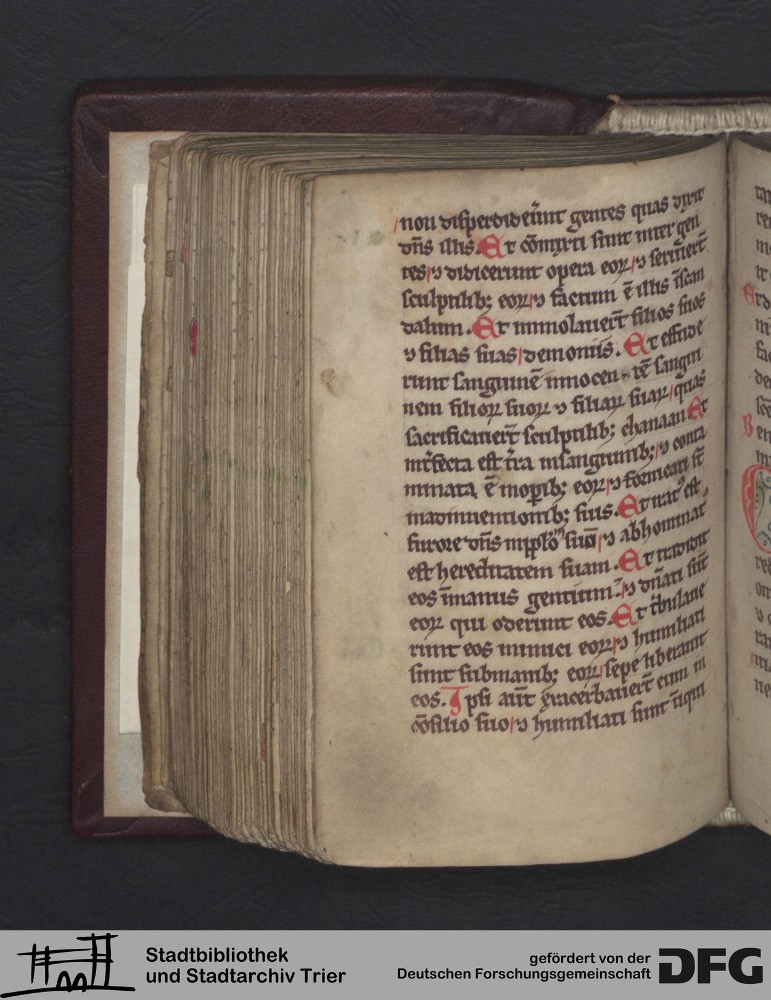 non disperdider̄unt gentes quas dixit
dn̄s illis. Et cōmixti sunt inter gen
tes ⁊ didicerunt opera eoꝝ ⁊ seruiert̄
sculptilib; eoꝝ ⁊ factum ē illis īscan
dalum. Et immolauert̄ filios suos
⁊ filias suas demoniis. Et effude
runt sanguinē innocen tē sangui
nem filioꝝ suoꝝ ⁊ filiaꝝ suaꝝ quas
sacrificauert̄ sculptilib; chanaan Et
int̄fecta est tr̄a insanguinib; ⁊ conta
minata ē inopīb; eoꝝ ⁊ fornicati st̄
inadinuentionib; suis. Et iratꝰ est
furore dn̄s inpp̄lō suū ⁊ abhominat
est hereditatem suam. Et tradidit
eos īmanus gentium ⁊ dn̄ati sūt
eoꝝ qui oderunt eos. Et tͥbulaue
runt eos inimici eoꝝ ⁊ humiliati
sunt submanib; eoꝝ sepe liberauit
eos. Ipsi aūt exacerbauert̄ eum in
cōsilio suo ⁊ humiliati sunt īiqui
Stadtbibliothek
und Stadtarchiv Trier
gefördert von der
Deutschen Forschungsgemeinschaft
DFG